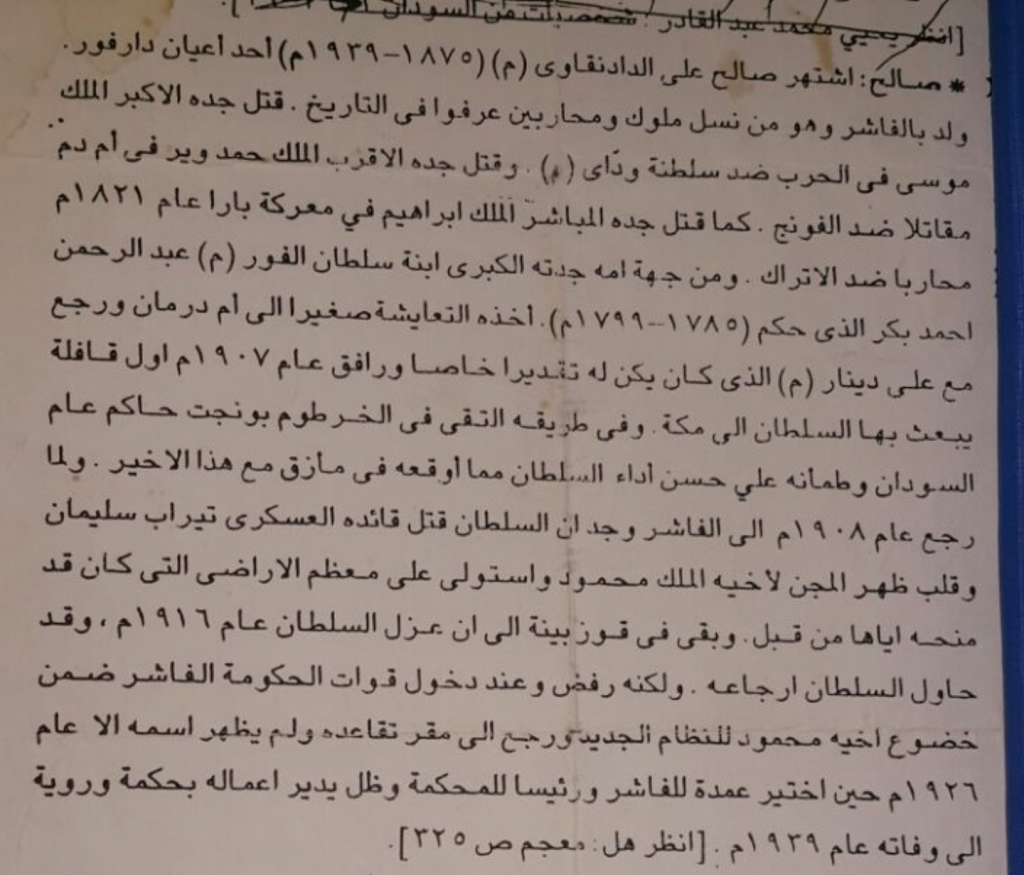 [انظر يحيي محمد عبد القادر : شخصيات من السودان
* صالح: اشتهر صالح على الدادنقاوى (م) (١٨٧٥-١٩٣٩م) أحد أعيان دارفور.
ولد بالفاشر وهو من نسل ملوك ومحاربين عرفوا فى التاريخ . قتل جده الاكبر الملك
موسى فى الحرب ضد سلطنة ودَاى (م) . وقتل جده الاقرب الملك حمد وير فى أم دم
مقاتلا ضد الفونج . كما قتل جده المباشر الملك ابراهيم في معركة بارا عام ١٨٢١م
محاربا ضد الاتراك . ومن جهة امه جدته الكبرى ابنة سلطان الفور (م) عبد الرحمن
احمد بكر الذى حكم (١٧٨٥-١٧٩٩م). أخذه التعايشة صغيرا الى أم درمان ورجع
مع على دينار (م) الذى كان يكن له تقديرا خاصا ورافق عام ١٩٠٧م اول قافلة
يبعث بها السلطان الى مكة . وفى طريقه التقى فى الخرطوم بونجت حاكم عام
السودان وطمأنه علي حسن أداء السلطان مما أوقعه فى مأزق مع هذا الاخير . ولما
رجع عام ١٩٠٨م الى الفاشر وجد ان السلطان قتل قائده العسكرى تيراب سليمان
وقلب ظهر المجن لأخيه الملك محمود واستولى على معظم الاراضى التى كان قد
منحه اياها من قبل. وبقى فى قوز بينة الى ان عزل السلطان عام ١٩١٦م ، وقد
حاول السلطان ارجاعه . ولكنه رفض وعند دخول قوات الحكومة الفاشر ضمن
خضوع أخيه محمود للنظام الجديد ورجع الى مقر تقاعده ولم يظهر اسمه الا عام
١٩٢٦م حين اختير عمدة للفاشر ورئيسا للمحكمة وظل يدير اعماله بحكمة وروية
الى وفاته عام ١٩٣٩م . [انظر هل: معجم ص ٣٢٥].